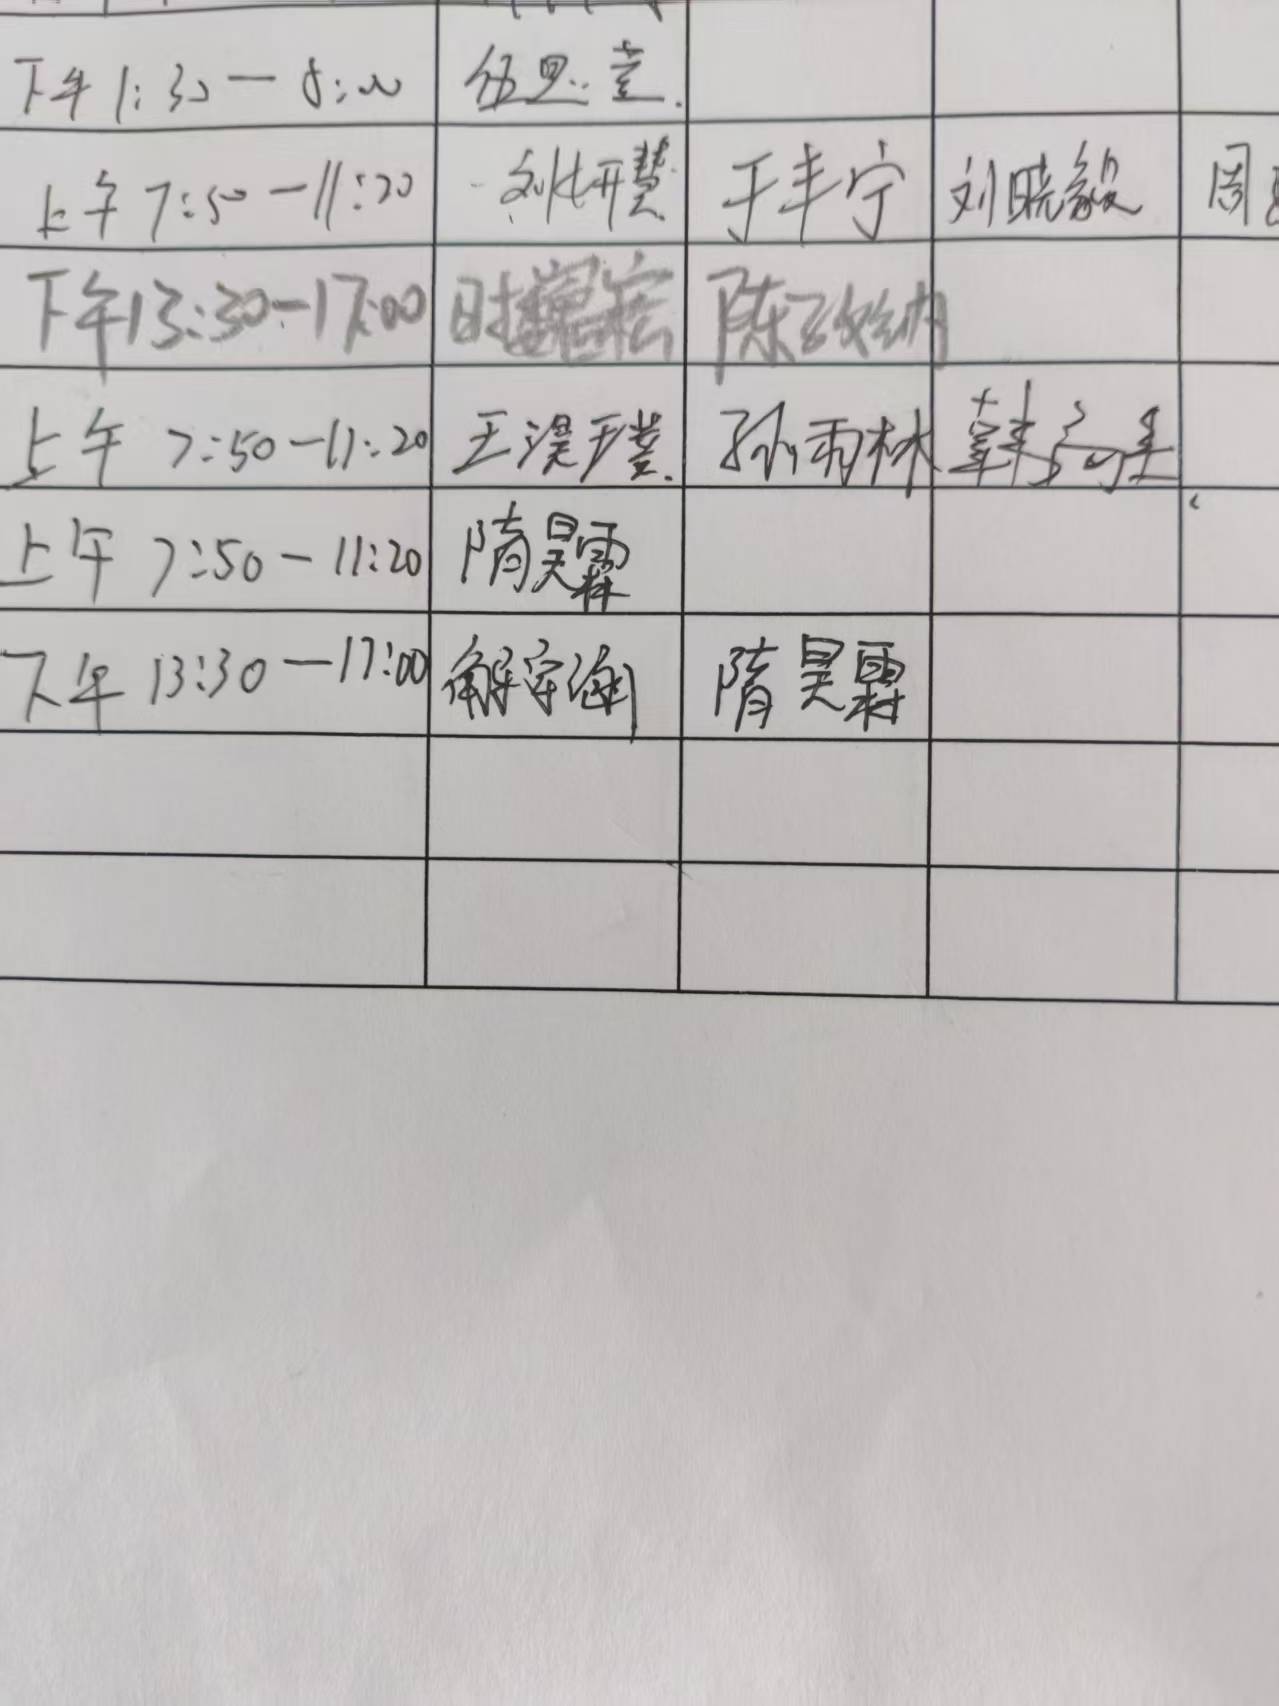 下午 1:30 — 5:00
上午 7:50 — 11:20 刘妍慧 于丰宁 刘晓毅 周
下午 13:30 — 17:00 陈
上午 7:50 — 11:20 王 孙雨林 韩
上午 7:50 — 11:20 隋昊霖
下午 13:30 — 17:00 解宇 隋昊霖